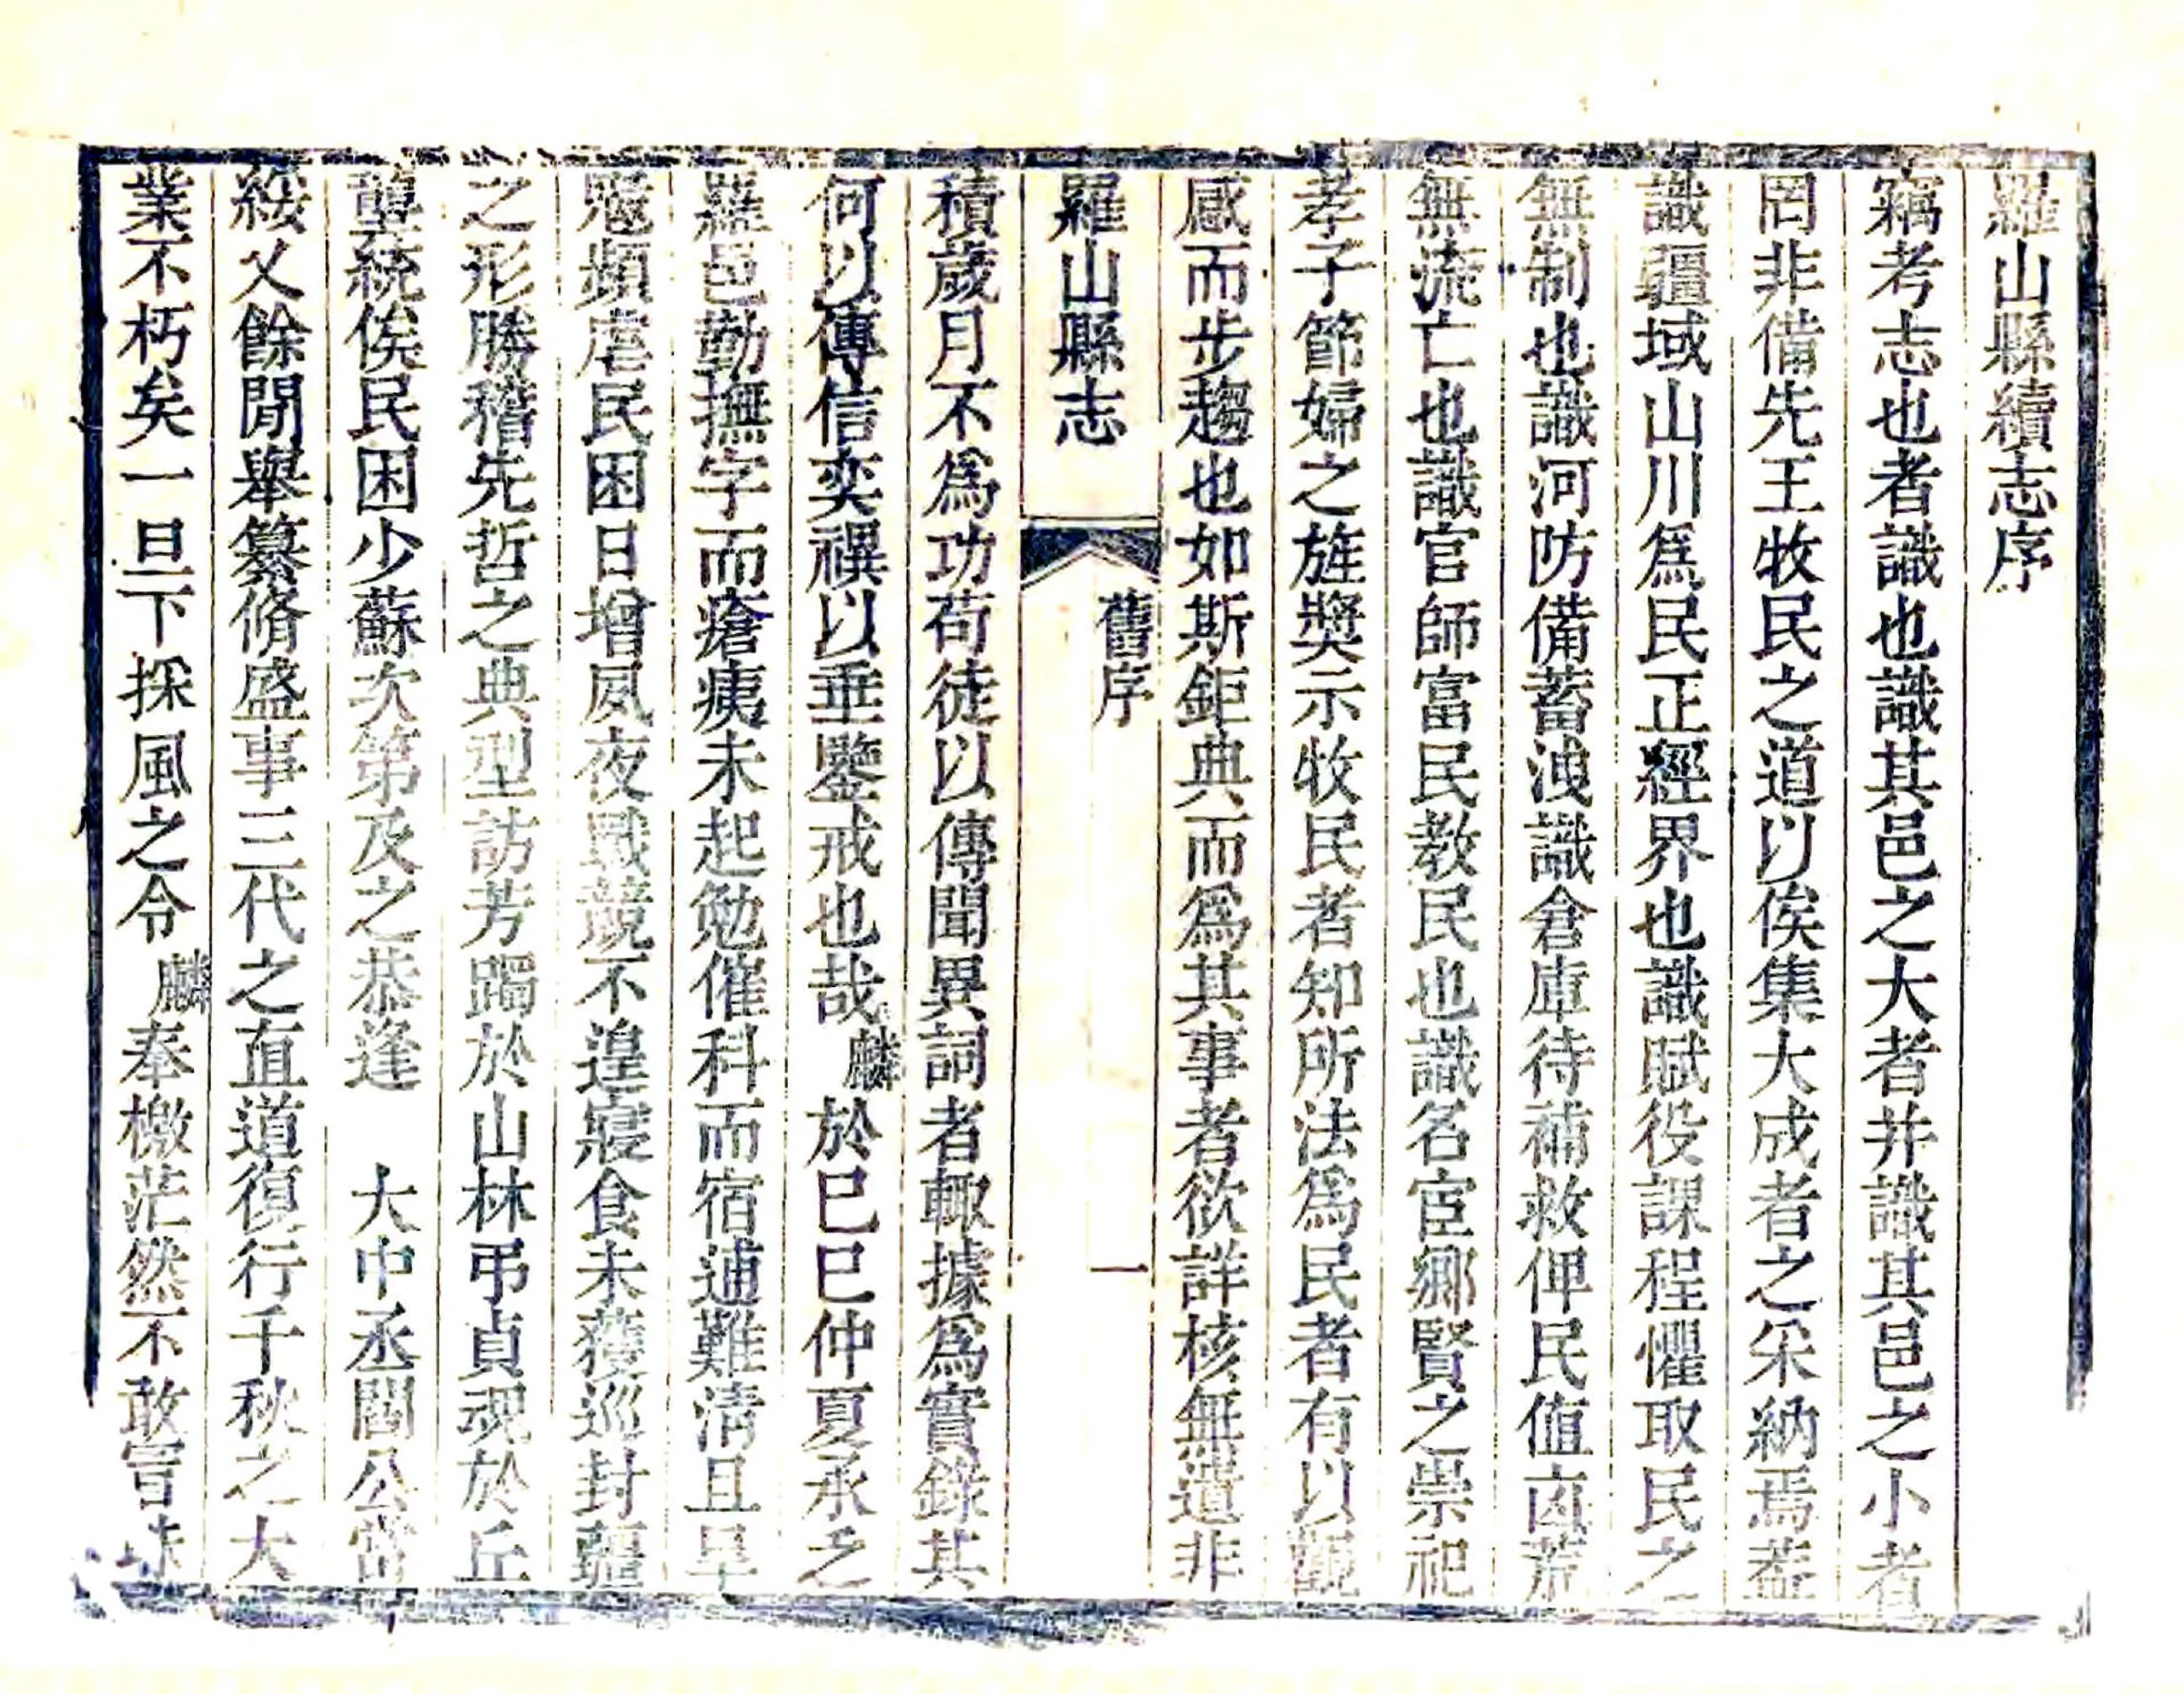 羅山縣續志序
竊考志也者識也識其邑之大者并識其邑之小者
罔非備先王牧民之道以俟集大成者之采納焉葢
識疆域山川爲民正經界也識賦役課程懼取民之
無制也識河防備蓄洩識倉庫待補救俾民值凶荒
無流亡也識官師富民教民也識名宦鄉賢之崇祀
孝子節婦之旌獎示牧民者知所法爲民者有以觀
感而步趨也如斯鉅典而爲其事者欲詳核無遺非
羅山縣志 舊序 一
積歲月不爲功苟徒以傳聞異詞者輙據爲實錄其
何以傳信奕禩以垂鑒戒也哉麟於巳巳仲夏承乏
羅邑勤撫字而瘡痍未起勉催科而宿逋難清且旱
魃頻虐民困日增夙夜戰兢不遑寢食未獲巡封疆
之形勝稽先哲之典型訪芳躅於山林弔貞魂於丘
壟統俟民困少蘇次第及之恭逢 大中丞閻公當
綏乂餘閒舉纂脩盛事三代之直道復行千秋之大
業不朽矣一旦下採風之令麟奉檄茫然不敢冒昧